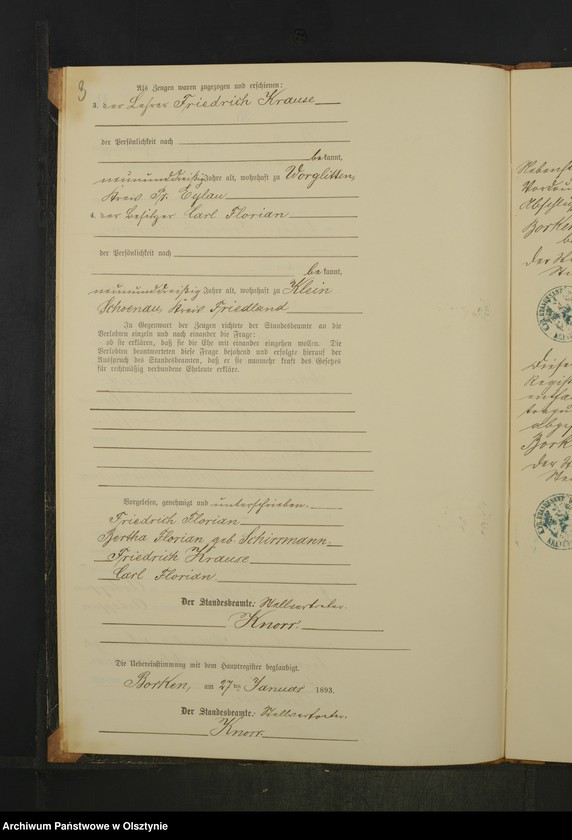 3
Als Zeugen waren zugezogen und erschienen:
3. der Lehrer Friedrich Krause
der Persönlichkeit nach
bekannt,
neununddreißig Jahre alt, wohnhaft zu Worglitten,
Kreis Pr. Eylau
4. der Besitzer Carl Florian
der Persönlichkeit nach
bekannt,
neununddreißig Jahre alt, wohnhaft zu Klein
Schoenau, Kreis Friedland
In Gegenwart der Zeugen richtete der Standesbeamte an die
Verlobten einzeln und nach einander die Frage:
ob sie erklären, daß sie die Ehe mit einander eingehen wollen. Die
Verlobten beantworteten diese Frage bejahend und erfolgte hierauf der
Ausspruch des Standesbeamten, daß er sie nunmehr kraft des Gesetzes
für rechtmäßig verbundene Eheleute erkläre.
Vorgelesen, genehmigt und unterschrieben.
Friedrich Florian
Bertha Florian geb. Schirrmann
Friedrich Krause
Carl Florian
Der Standesbeamte: Stellvertreter.
Knorr.
Die Uebereinstimmung mit dem Hauptregister beglaubigt.
Borken, am 27ten Januar 1893.
Der Standesbeamte: Stellvertreter.
Knorr.
Borken
Der
Diese
Borken
Der
Archiwum Państwowe w Olsztynie